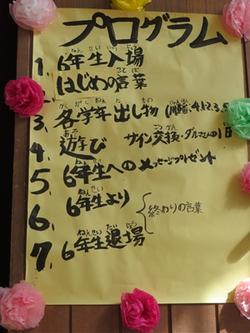 プログラム
1. 6年生入場
はじめの言葉
3. 各学年出し物
4. 遊び サイン交換・ダルマさんの1日
5. 6年生へのメッセージプレゼント
6. 6年生より
終わりの言葉
7. 6年生退場